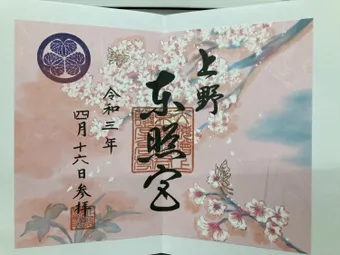 上野
东照宮
令和三年
四月十六日参拝